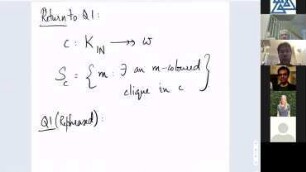 Return to Q1:
c : K_ℕ ↠ ω
S_c = { m : ∃ an m-coloured
clique in c }
Q1 (Rephrased) :